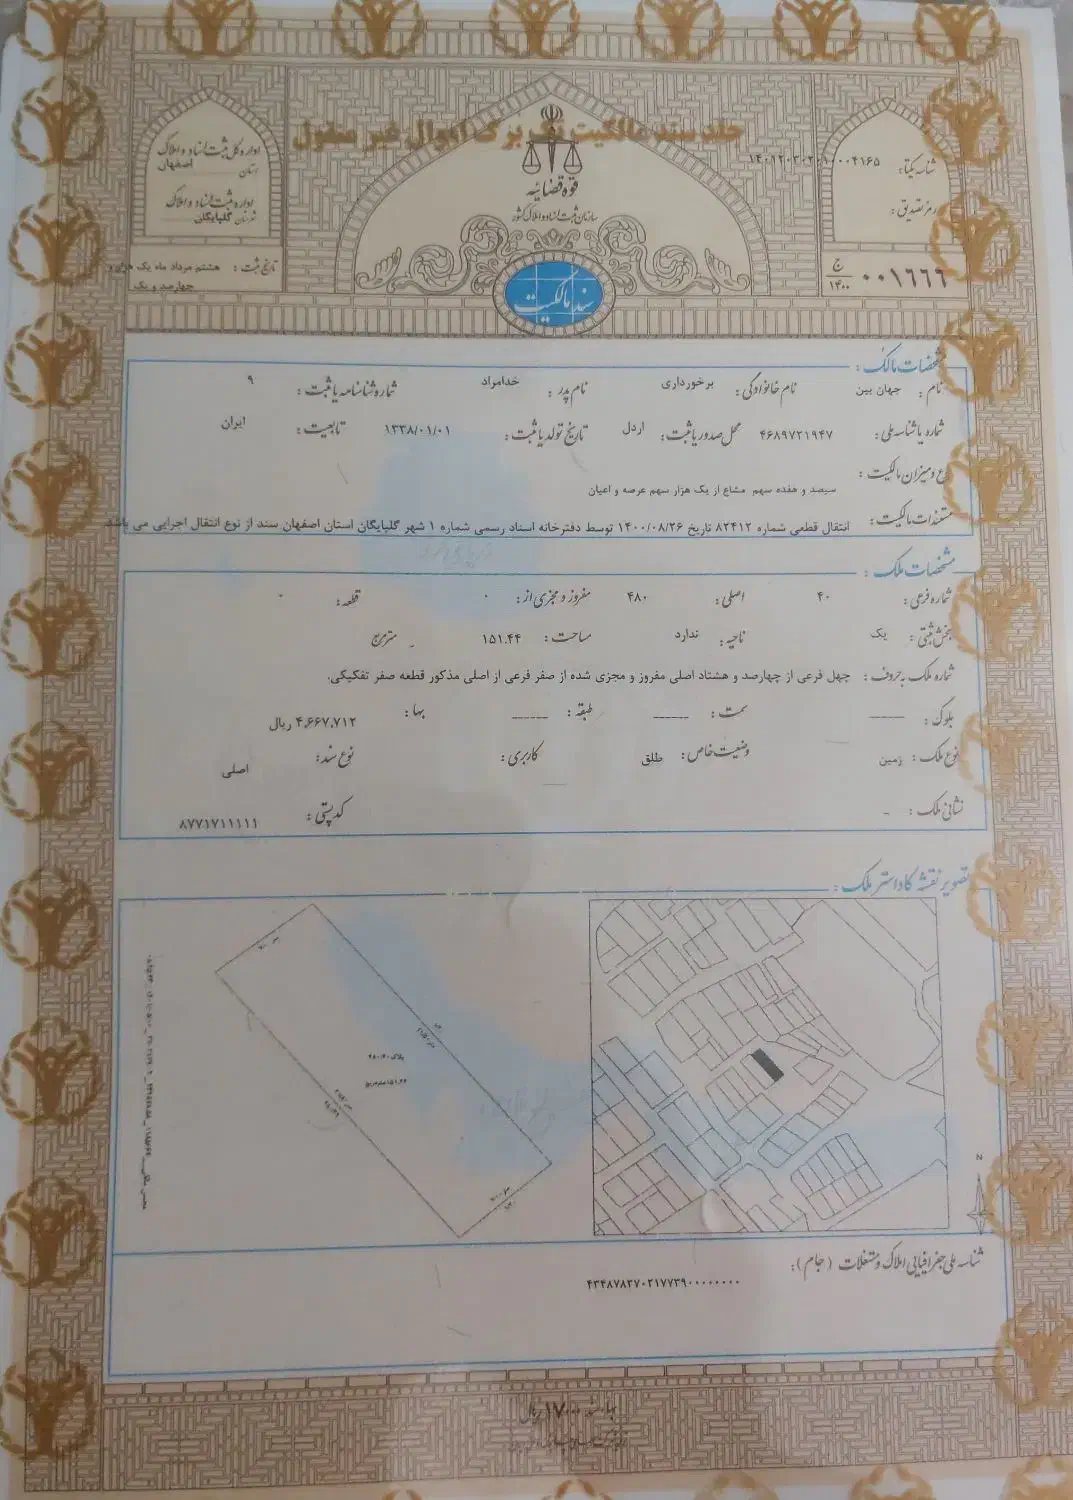 جلد سند مالکیت تک برگ اموال غیر منقول
قوه قضائیه
سازمان ثبت اسناد و املاک کشور
سند مالکیت
شناسه یکتا: ۱۴۰۱۲۰۳۰۲۰۱۰۰۰۴۱۶۵
رمز تصدیق:
ج
۱۴۰۰
۰۰۱۶۶۶
اداره کل ثبت اسناد و املاک
استان اصفهان
اداره ثبت اسناد و املاک
شهرستان گلپایگان
تاریخ ثبت: هشتم مرداد ماه یک هزار و
چهارصد و یک
مشخصات مالک:
نام: جهان بین نام خانوادگی: برخورداری نام پدر: خدامراد شماره شناسنامه یا ثبت: ۹
شماره یا شناسه ملی: ۴۶۸۹۷۲۱۹۴۷ محل صدور یا ثبت: اردل تاریخ تولد یا ثبت: ۱۳۳۸/۰۱/۰۱ تابعیت: ایران
نوع و میزان مالکیت:
سیصد و هفده سهم مشاع از یک هزار سهم عرصه و اعیان
مستندات مالکیت: انتقال قطعی شماره ۸۲۴۱۲ تاریخ ۱۴۰۰/۰۸/۲۶ توسط دفترخانه اسناد رسمی شماره ۱ شهر گلپایگان استان اصفهان سند از نوع انتقال اجرایی می باشد
مشخصات ملک:
شماره فرعی: ۴۰ اصلی: ۴۸۰ مفروز و مجزی از: ۰ قطعه: ۰
بخش ثبتی: یک ناحیه: ندارد مساحت: ۱۵۱.۴۴ مترمربع
شماره ملک به حروف: چهل فرعی از چهارصد و هشتاد اصلی مفروز و مجزی شده از صفر فرعی از اصلی مذکور قطعه صفر تفکیکی.
بلوک: ----- سمت: ----- طبقه: ----- بها: ۴,۶۶۷,۷۱۲ ریال
نوع ملک: زمین وضعیت خاص: طلق کاربری: نوع سند: اصلی
نشانی ملک: - کد پستی: ۸۷۷۱۷۱۱۱۱۱
تصویر نقشه کاداستر ملک:
پلاک ۴۸۰/۴۰
۱۵۱.۴۴ مترمربع
N
شناسه ملی جغرافیایی املاک و مستغلات (جام):
۴۳۴۸۷۸۳۷۰۲۱۷۷۳۹۰۰۰۰۰۰۰۰
بهاء سند ۱۷۰۰۰ ریال